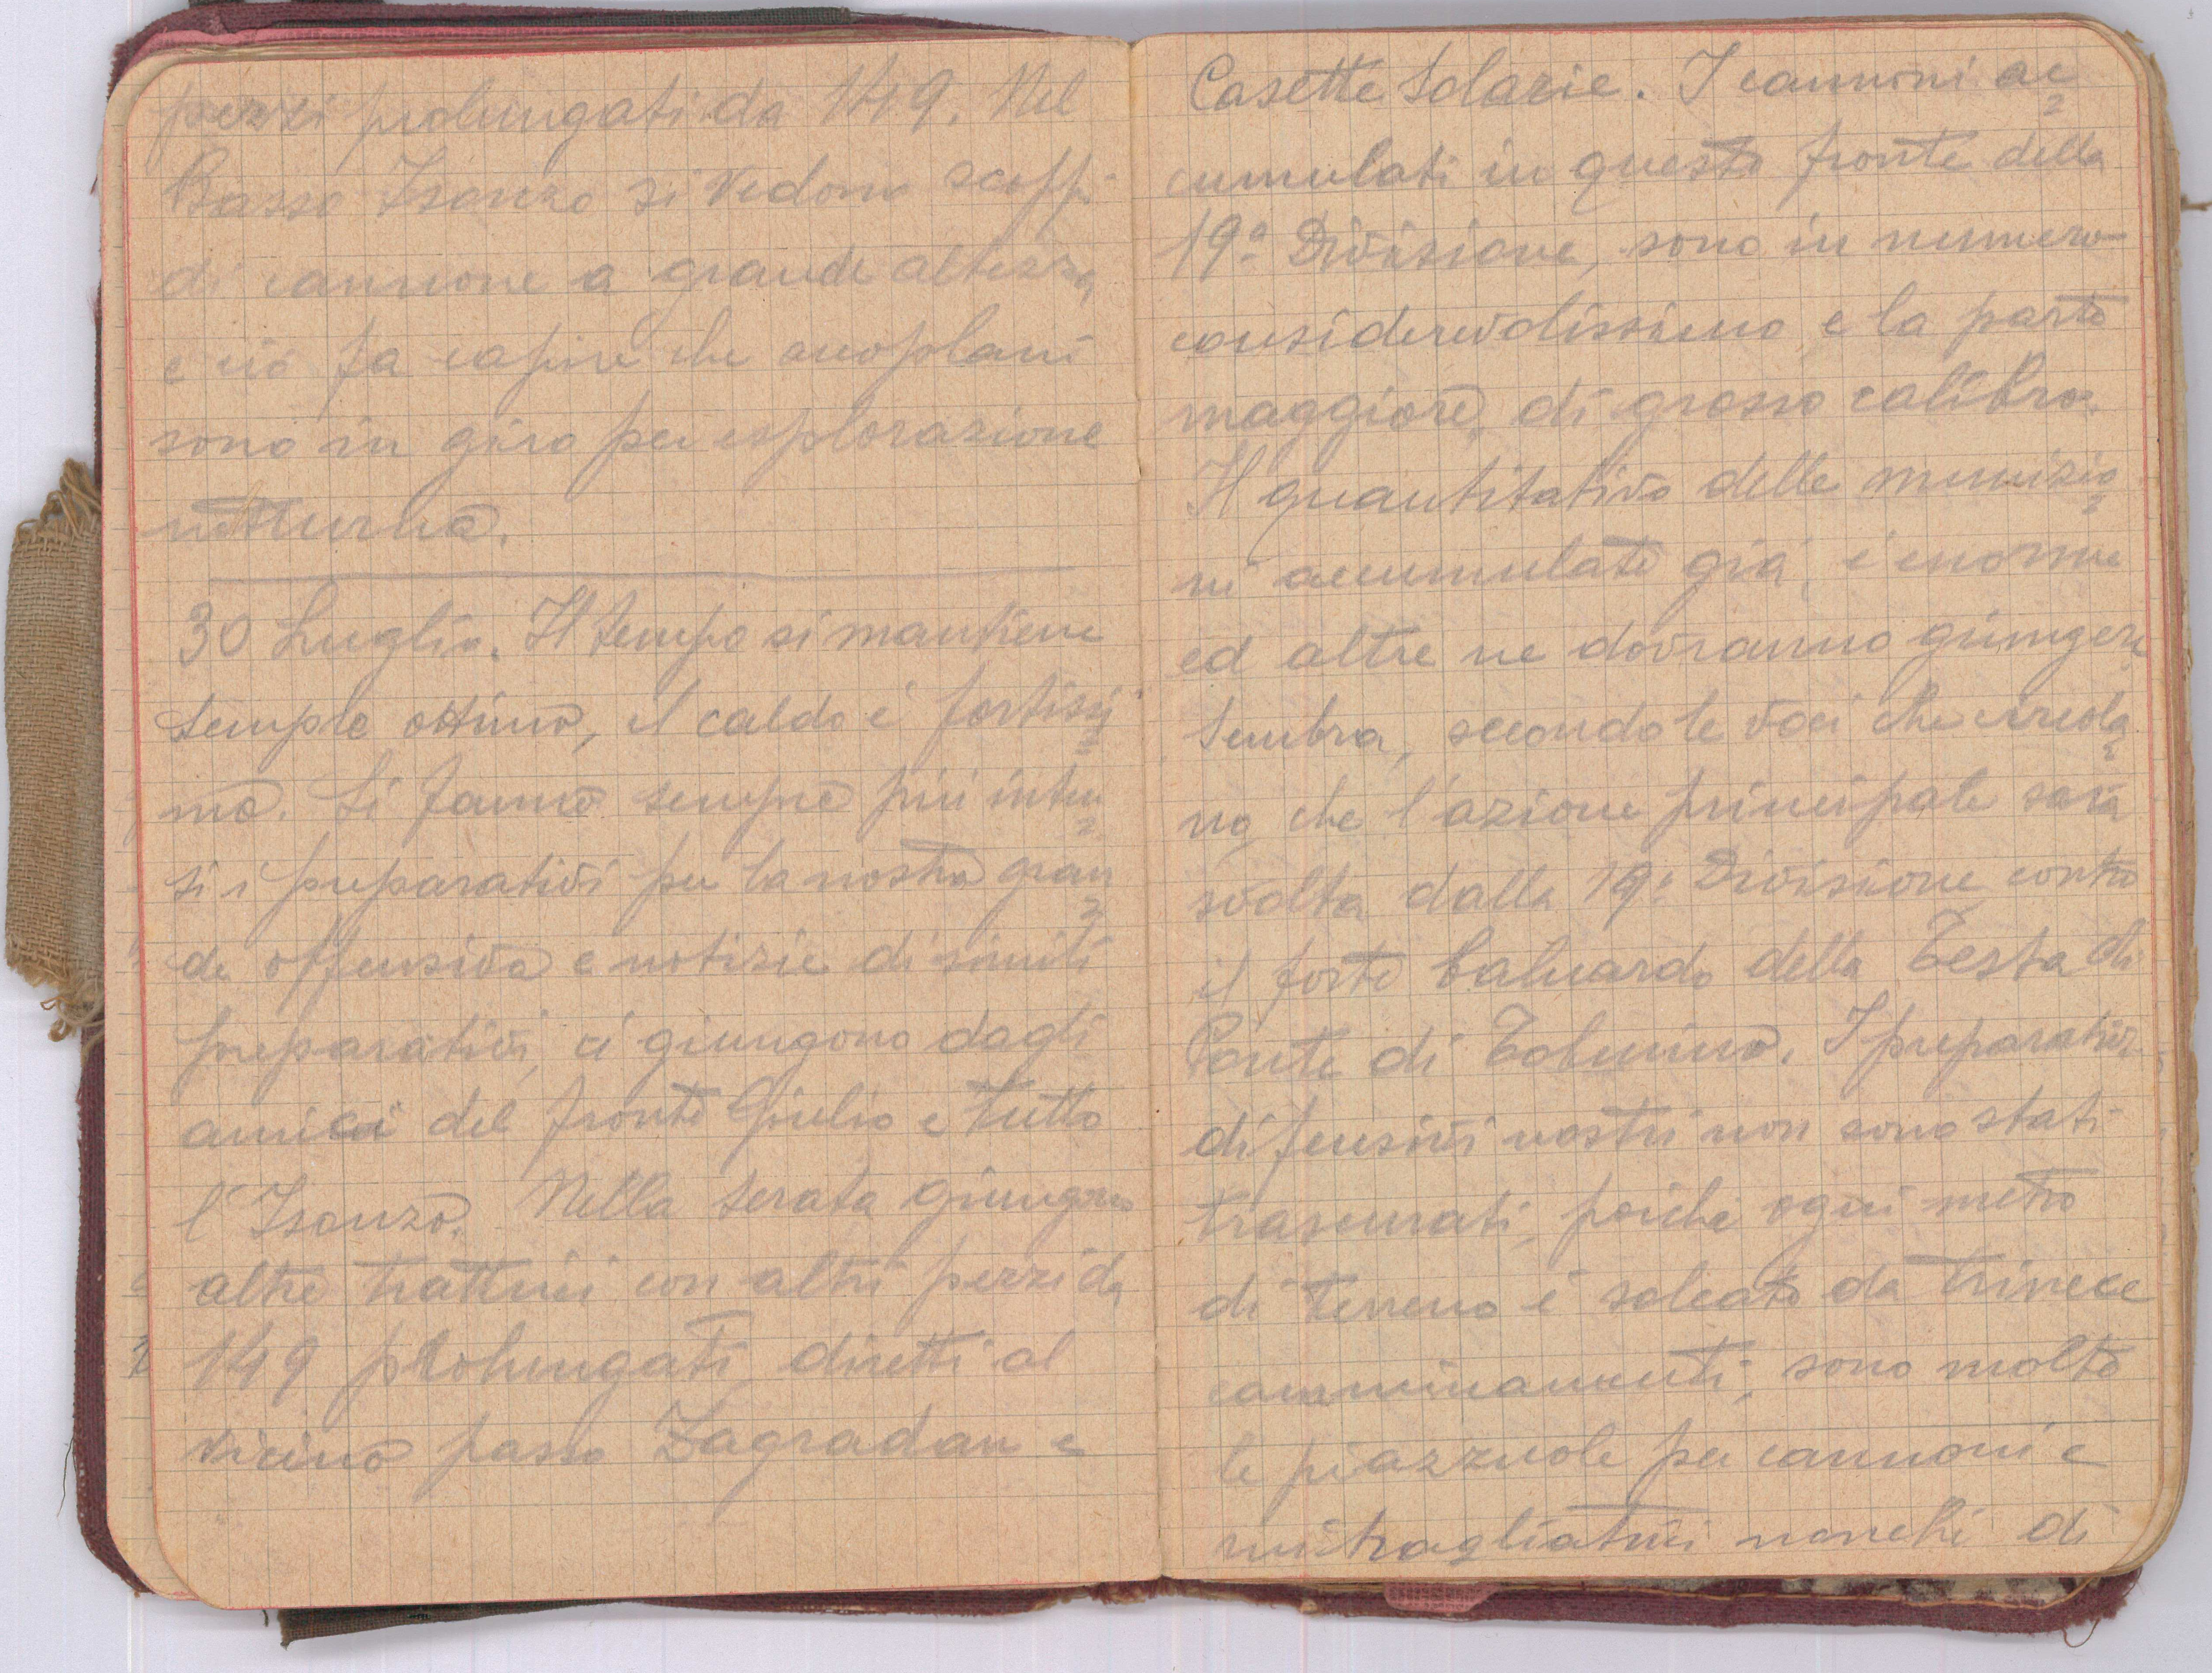 pezzi prolungati da 149. Nel
Basso Isonzo si vedono scoppi
di cannone a grande altezza
e ciò fa capire che areoplani
sono in giro per esplorazione
notturna.
30 Luglio. Il tempo si mantiene
sempre ottimo, il caldo è fortissi=
mo. Si fanno sempre più inten=
si i preparativi per la nostra gran=
de offensiva e notizie di simili
preparativi, ci giungono dagli
amici del fronte Giulio e tutto
l'Isonzo. Nella serata giungono
altre trattrici con altri pezzi da
149 prolungati, diretti al
vicino passo Zagradan e
Casette Solarie. I cannoni ac=
cumulati in questo fronte della
19ª Divisione, sono in numero
considerevolissimo e la parte
maggiore, di grosso calibro.
Il quantitativo delle munizio=
ni accumulate già, è enorme
ed altre ne dovranno giungere.
Sembra, secondo le voci che circola=
no, che l'azione principale sarà
svolta dalla 19ª Divisione contro
il forte baluardo della Testa di
Ponte di Tolmino. I preparativi
difensivi nostri non sono stati
trascurati, poiché ogni metro
di terreno è solcato da trincee
camminamenti, sono molte
le piazzuole per cannoni e
mitragliatrici nonché di